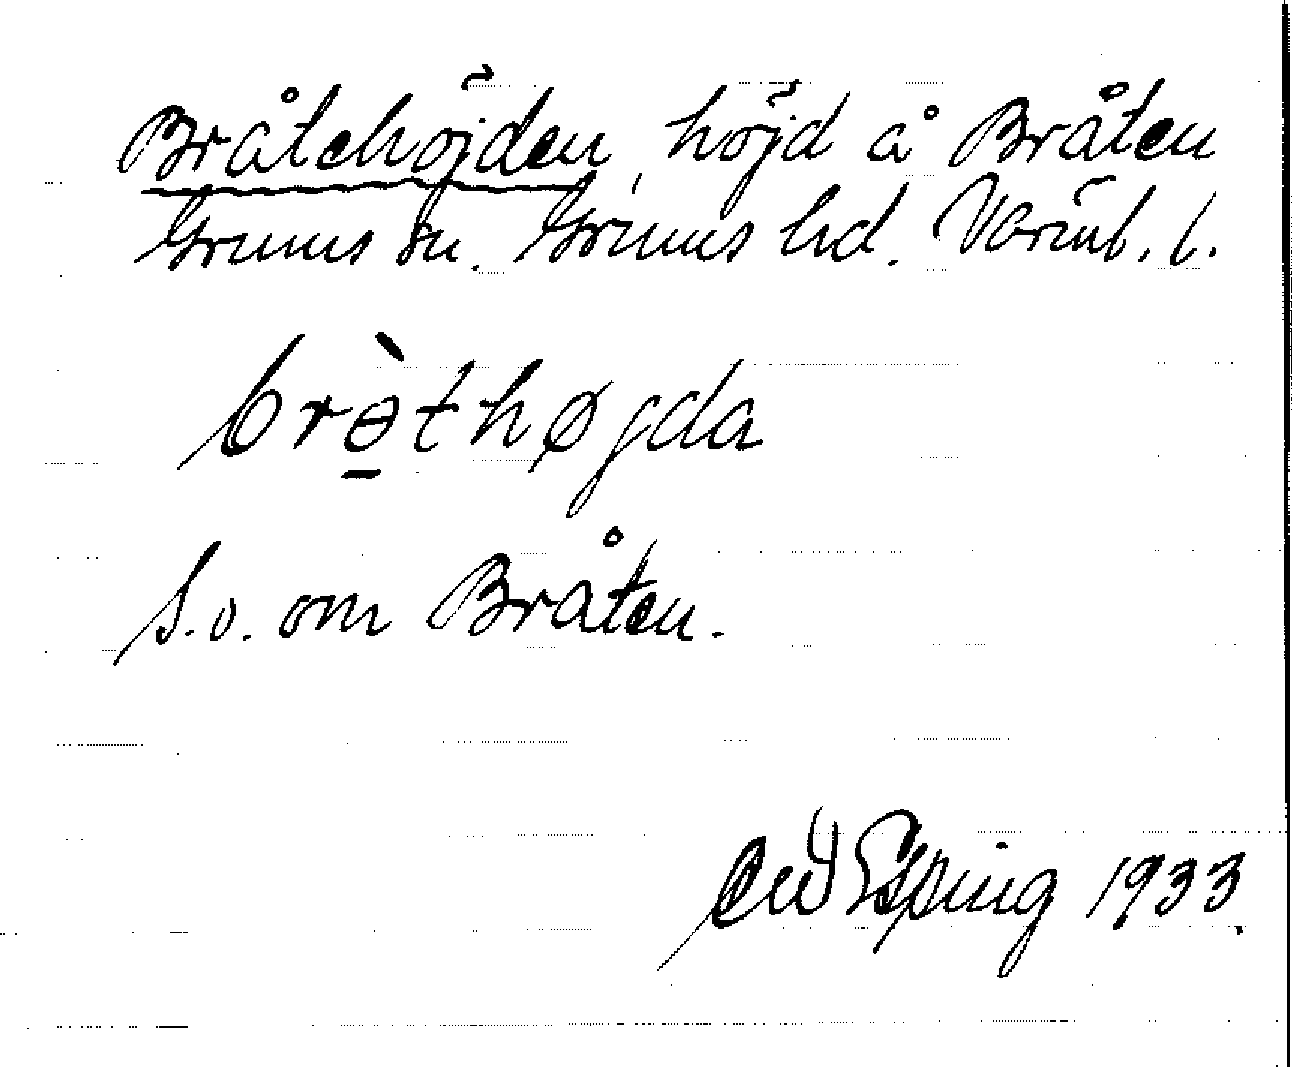 Bråtehöjden, höjd å Bråten
Grums sn. Grums hd. Värml. l.
brɵ̠̀thøgda
S.o. om Bråten.
Esping 1933.